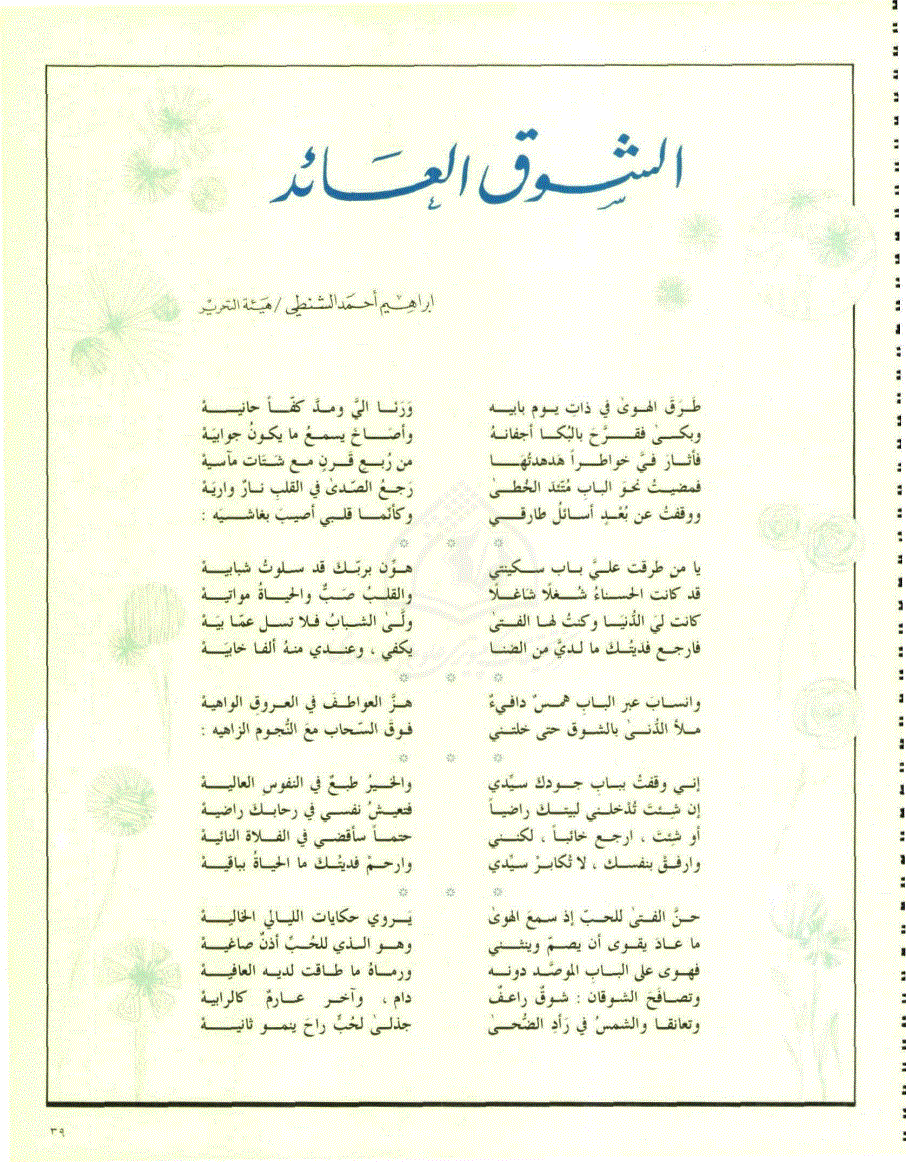 الشوق العائد
ابراهيم أحمد الشنطي / هيئة التحرير
طَرَقَ الهوىٰ في ذاتِ يوم بابيه وَرَنا اليَّ ومدَّ كفّاً حانيةْ
وبكىٰ فقرَّحَ بالبُكا أجفانهُ وأصَاخَ يسمعُ ما يكونُ جوابيَهْ
فأثارَ فيَّ خواطراً هَدهدتُهَا من رُبعِ قَرنٍ مع شتَات مآسيهْ
فمضيتُ نحوَ البابِ مُتَّئدَ الخُطىٰ رَجعُ الصّدىٰ في القلبِ نارٌ واريَهْ
ووقفتُ عن بُعْدٍ أسائلُ طارقي وكأنّما قلبي أصيبَ بغاشيَه :
يا من طرقت عليَّ باب سكينتي هوّن بربّكَ قد سلوتُ شبابيهْ
قد كانت الحسناءُ شُغلًا شاغلًا والقلبُ صَبٌّ والحياةُ مواتيةْ
كانت ليَ الدُّنيَا وكنتُ لها الفتىٰ ولَّىٰ الشبابُ فلا تسل عمّا بيَهْ
فارجع فديتُكَ ما لديَّ من الضنا يكفي ، وعندي منهُ ألفا خابيَهْ
وانسابَ عبر البابِ همسٌ دافيءٌ هزَّ العواطفَ في العروقِ الواهيهْ
ملأ الدُّنىٰ بالشوق حتى خلتني فوقَ السّحاب معَ النُّجوم الزاهيه :
إني وقفتُ بباب جودكَ سيِّدي والخيرُ طبعٌ في النفوسِ العاليهْ
إن شئتَ تُدْخلني ليتكَ راضياً فتعيشُ نفسي في رحابكَ راضيةْ
أو شئِتَ ، ارجع خائباً ، لكنني حتماً سأقضي في الفلاة النائيهْ
وارفقْ بنفسكَ ، لا تُكابرْ سيِّدي وارحمْ فديتُكَ ما الحياةُ بباقيهْ
حنَّ الفتىٰ للحبّ إذ سمعَ الهوىٰ يَروي حكايات الليالي الخاليهْ
ما عادَ يقوى أن يصمّ وينثني وهو الذي للحُبِّ أذنٌ صاغيهْ
فهوى على البابِ الموصَّد دونه ورماهُ ما طاقت لديه العافيهْ
وتصافَحَ الشوقان : شوقٌ راعفٌ دامٍ ، وآخر عارمٌ كالرابيهْ
وتعانقا والشمسُ في رَأدِ الضُّحىٰ جذلىٰ لحُبٍّ راحَ ينمو ثانيهْ
٣٩